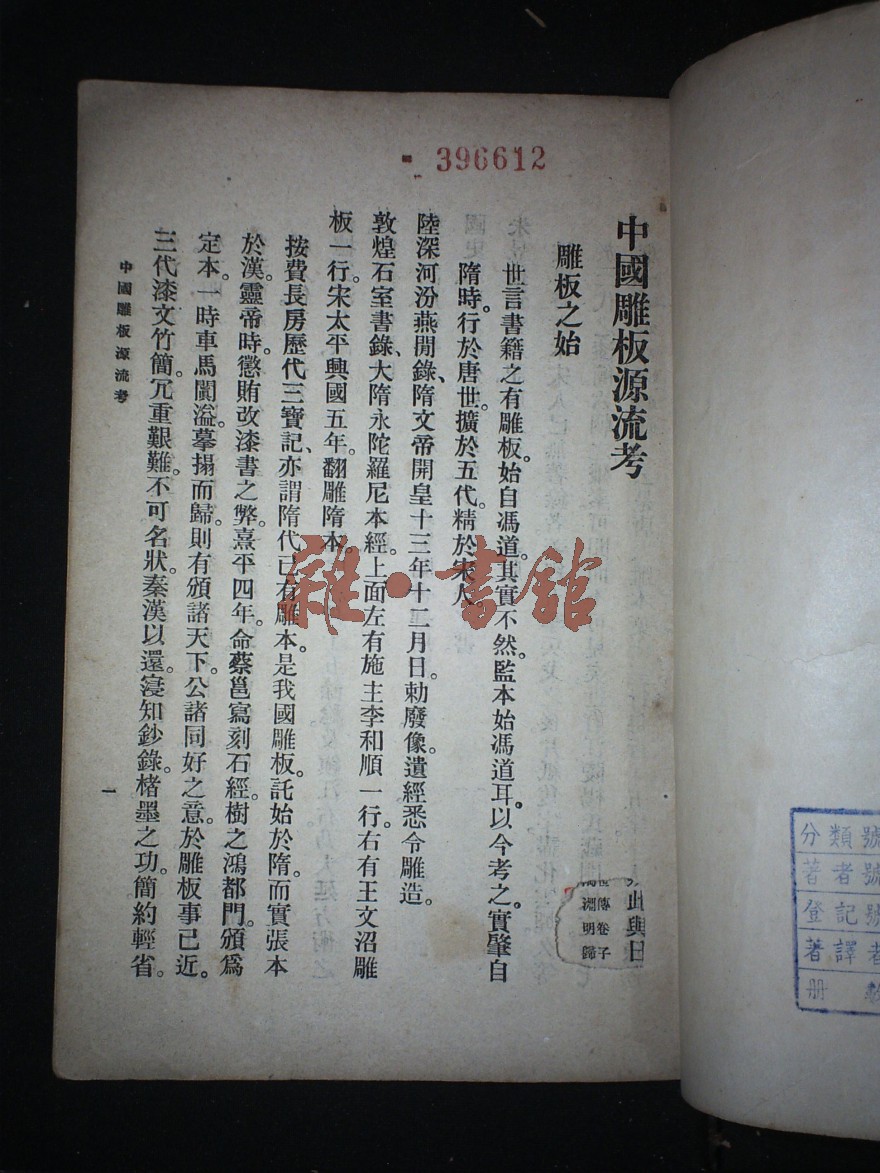 396612
中國雕板源流考
雕板之始
世言書籍之有雕板。始自馮道。其實不然。監本始馮道耳。以今考之。實肇自
隋時。行於唐世。擴於五代。精於宋人。
陸深河汾燕閒錄、隋文帝開皇十三年十二月日。勅廢像遺經。悉令雕造。
敦煌石室書錄、大隋永陀羅尼本經。上面左有施主李和順一行。右有王文沼雕
板一行。宋太平興國五年。翻雕隋本。
按費長房歷代三寶記、亦謂隋代已有雕本。是我國雕板。託始於隋。而實張本
於漢。靈帝時。懲賄改漆書之弊。熹平四年。命蔡邕寫刻石經。樹之鴻都門。頒爲
定本。一時車馬闐溢。摹搨而歸。則有頒諸天下。公諸同好之意。於雕板事已近。
三代漆文竹簡。冗重艱難。不可名狀。秦漢以還。寖知鈔錄。楮墨之功。簡約輕省。
中國雕板源流考
一
此與日
傳卷子
淵明歸
雜·書館
分類號
著者號
登記號
著譯者
册數